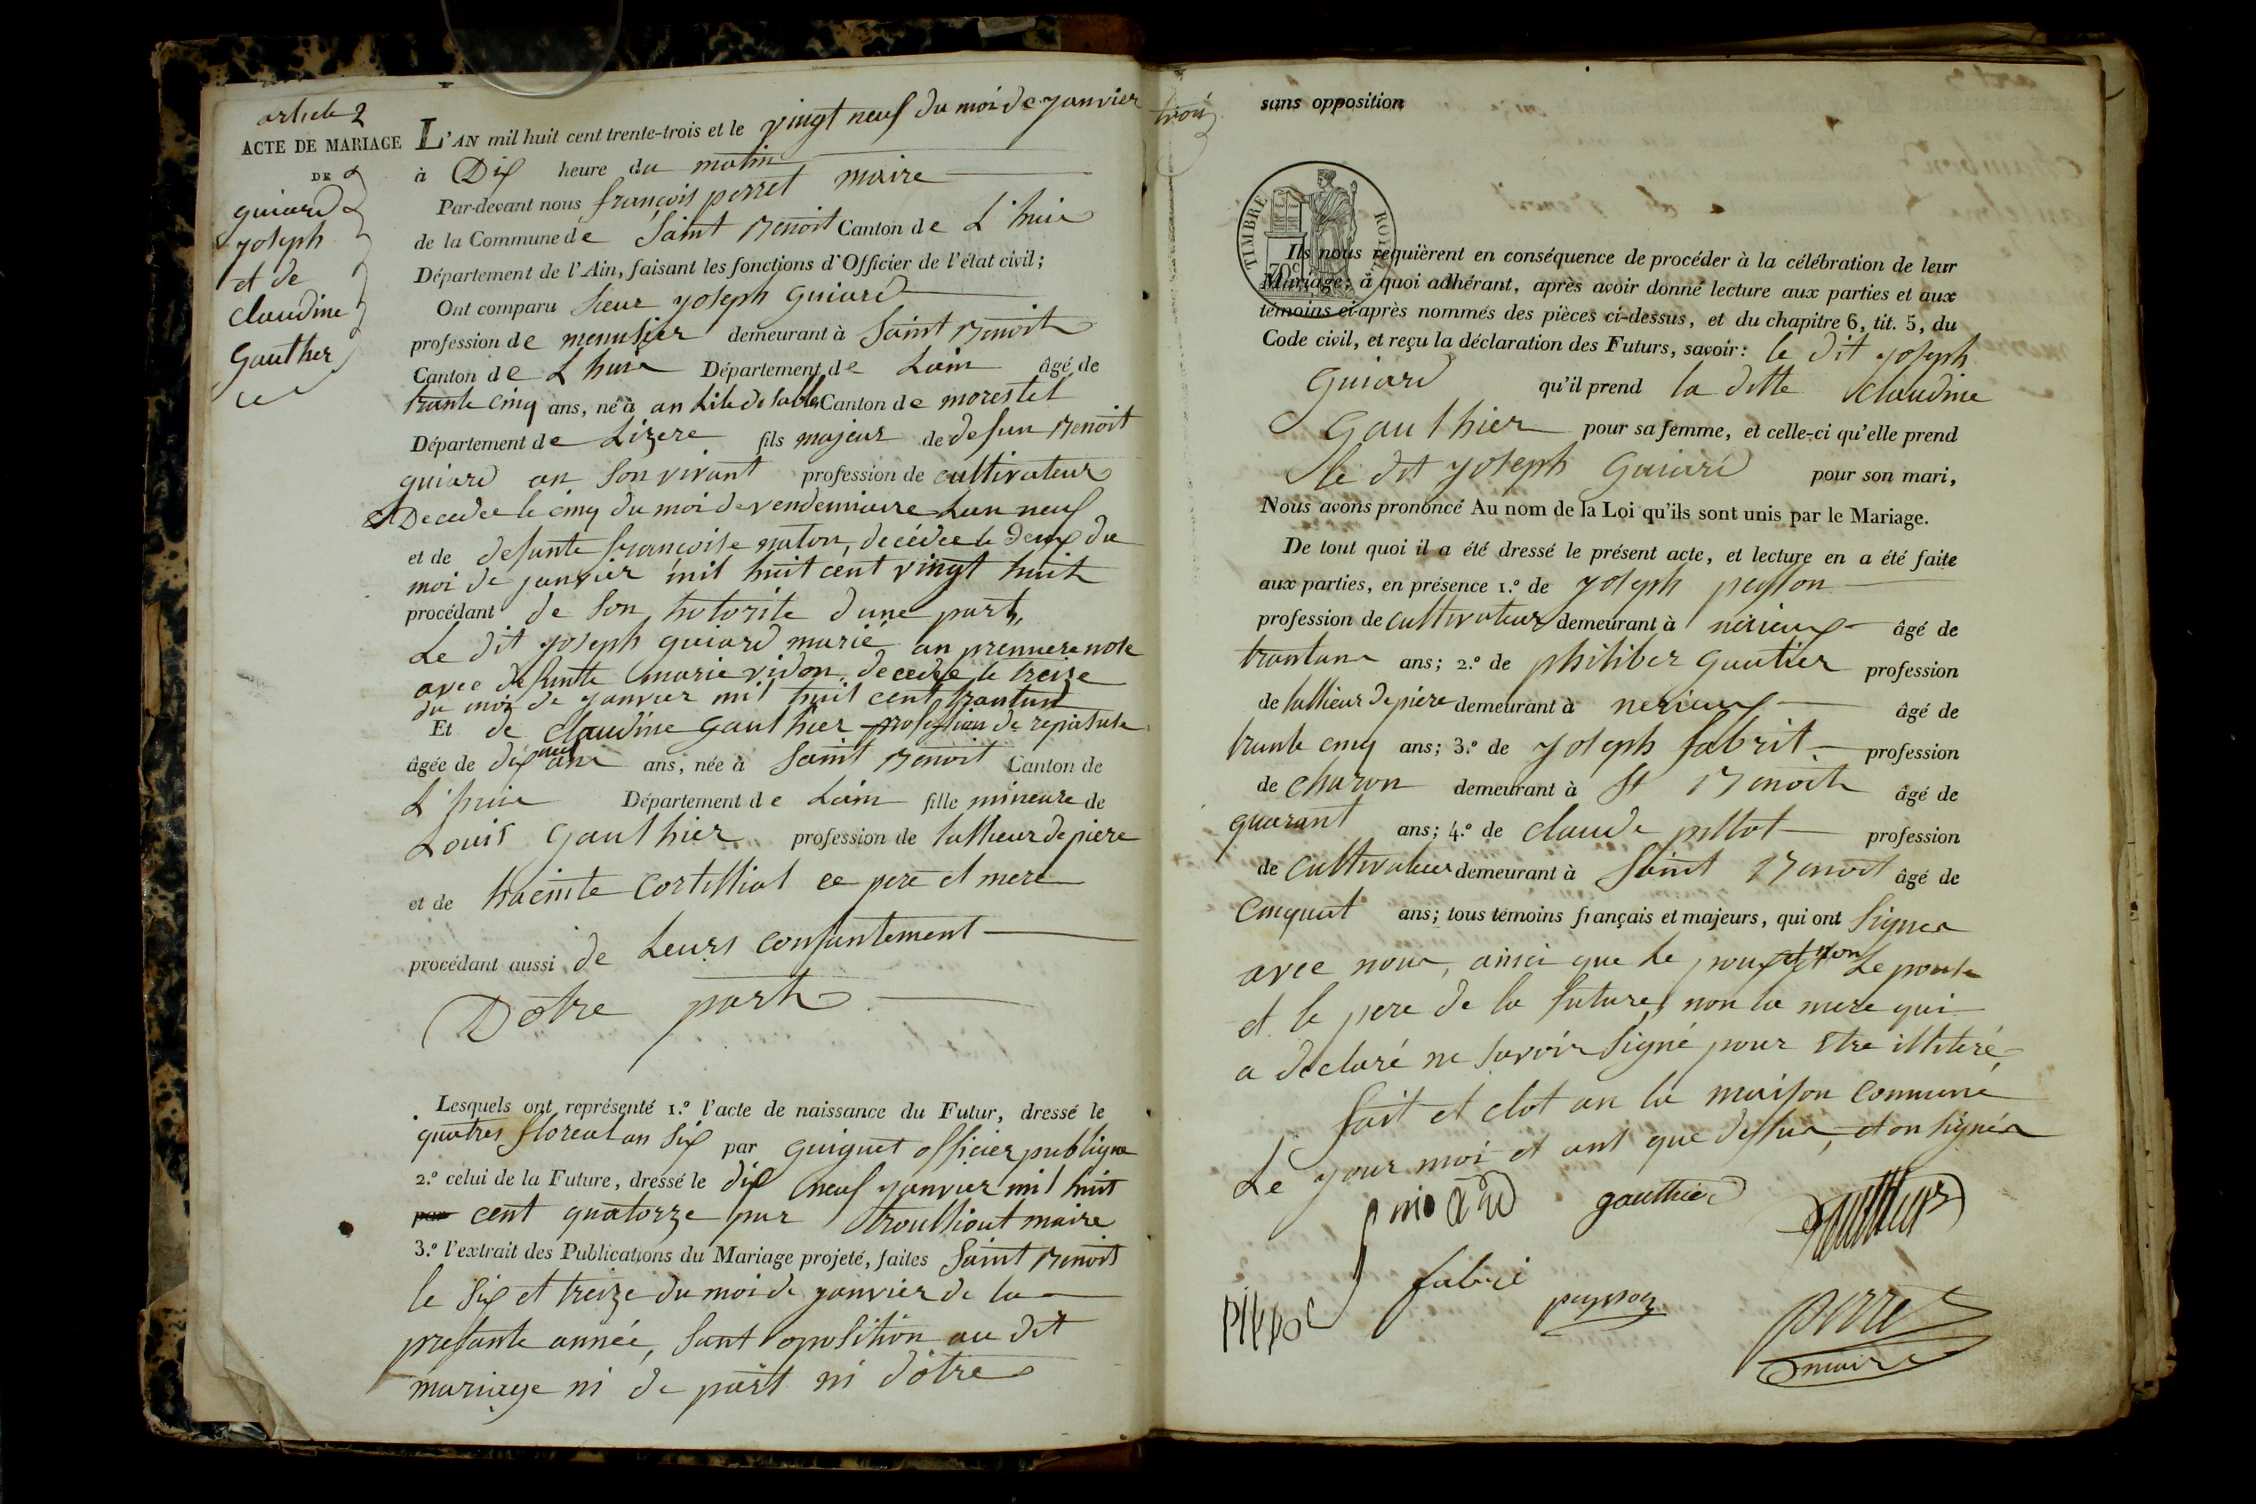 article 2
ACTE DE MARIAGE
DE
guiard
joseph
et de
claudine
Gauther
L'AN mil huit cent trente-trois et le vingt neuf du moi de janvier
à Dix heure du matin
Par-devant nous françois perret maire
de la Commune de Saint Benoit Canton de L'huis
Département de l'Ain, faisant les fonctions d'Officier de l'état civil;
Ont comparu sieur joseph Guiard
profession de menusier demeurant à Saint Benoit
Canton de L huis Département de Lain âgé de
trante cinq ans, né à Canton de morestel
Département de Lizere fils majeur de defun Benoit
guiard an son vivant profession de cultivateur
Decedee le cinq du moi de vendemiaire Lan neuf
et de defunte françoise naton, decédee le deux du
moi de janvier mil huit cent vingt huit
procédant de son hotorite d'une part,
Le dit joseph guiard marié an premiere note
avec defunte marie vidon, decedee le treize
du moi de janvier mil huit cent trantun
Et de claudine Gauthier profession de
âgée de dix neuf ans ans, née à Saint Benoit Canton de
L'huis Département de Lain fille mineure de
Louis Gauthier profession de tallieur de piere
et de hacinte Cortilliat ce pere et mere
procédant aussi de Leurs consantement
Dotre part
Lesquels ont représenté 1.º l'acte de naissance du Futur, dressé le
quatres floreal an six par guiguet officier publique
2.º celui de la Future, dressé le dix neuf janvier mil huit
par cent quatorze par troulliout maire
3.º l'extrait des Publications du Mariage projeté, faites Saint Benoit
le six et treize du moi de janvier de la
presante année, sant oposition au dit
mariage ni de part ni dotre
troi
sans opposition
TIMBRE ROYAL
70c
Ils nous requièrent en conséquence de procéder à la célébration de leur
Mariage; à quoi adhérant, après avoir donné lecture aux parties et aux
témoins ci-après nommés des pièces ci-dessus, et du chapitre 6, tit. 5, du
Code civil, et reçu la déclaration des Futurs, savoir: le dit joseph
Guiard qu'il prend la ditte Claudine
Gauthier pour sa femme, et celle-ci qu'elle prend
le dit joseph Guiard pour son mari,
Nous avons prononcé Au nom de la Loi qu'ils sont unis par le Mariage.
De tout quoi il a été dressé le présent acte, et lecture en a été faite
aux parties, en présence 1.º de joseph peysson
profession de cultivateur demeurant à nerieux âgé de
trantun ans; 2.º de philiber Gautier profession
de tallieur de piere demeurant à nerieux âgé de
trante cinq ans; 3.º de joseph fabrit profession
de charon demeurant à St Benoit âgé de
quarant ans; 4.º de claude pittot profession
de Cultivateur demeurant à Saint Benoit âgé de
Cinquant ans; tous témoins français et majeurs, qui ont Signer
avec nous, ainci que Le et non Le
et le pere de la future, non la mere qui
a declaré ne savoir signé pour etre illiteré,
fait et clot an la maison commune
Le jour moi et ant que dessus, et on signér
guiard gauthier gautier
pittot fabri peysson perret
maire